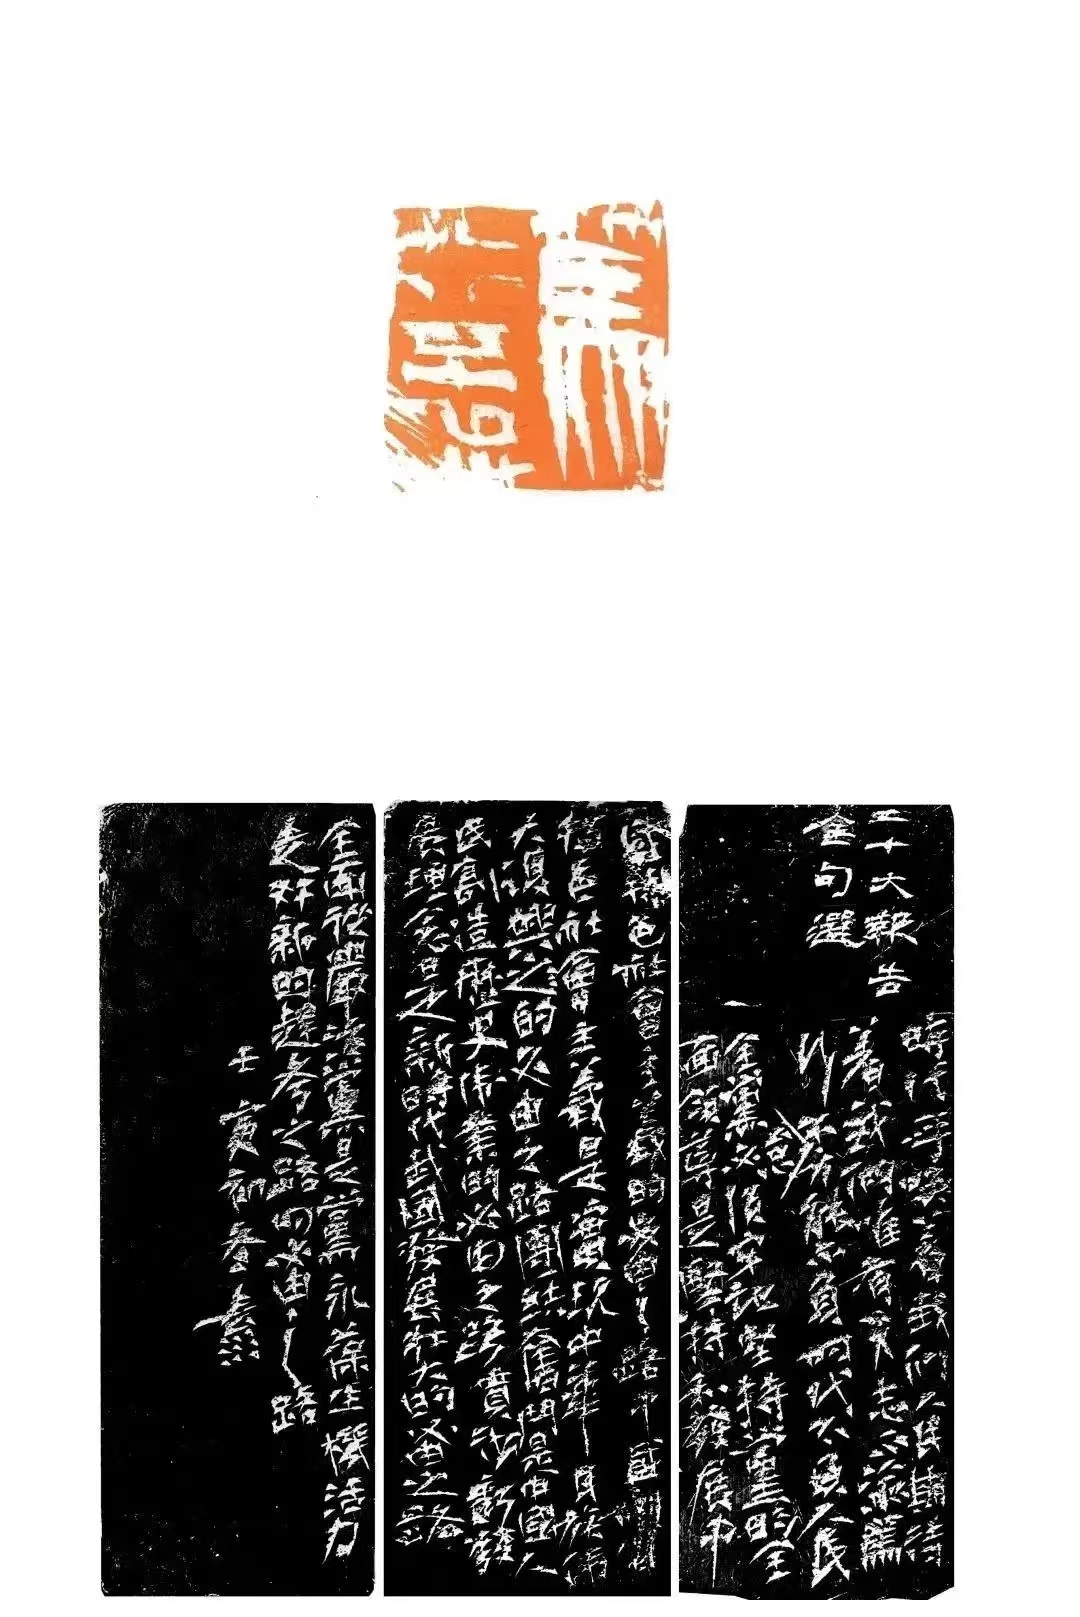 二十大報告
金句選
時代呼喚着我們人民期待
着我們唯有矢志不渝篤
行不怠方能不負時代不負人民
全黨必須牢記堅持黨的全
面領導是堅持和發展中
國特色社會主義的必由之路中國
特色社會主義是實現中華民族偉
大復興之的必由之路團結奮鬥是中國人
民創造歷史偉業的必由之路貫徹新發
展理念是新時代我國發展壯大的必由之路
全面從嚴治黨是黨永葆生機活力
走好新的趕考之路的必由之路
壬寅初冬